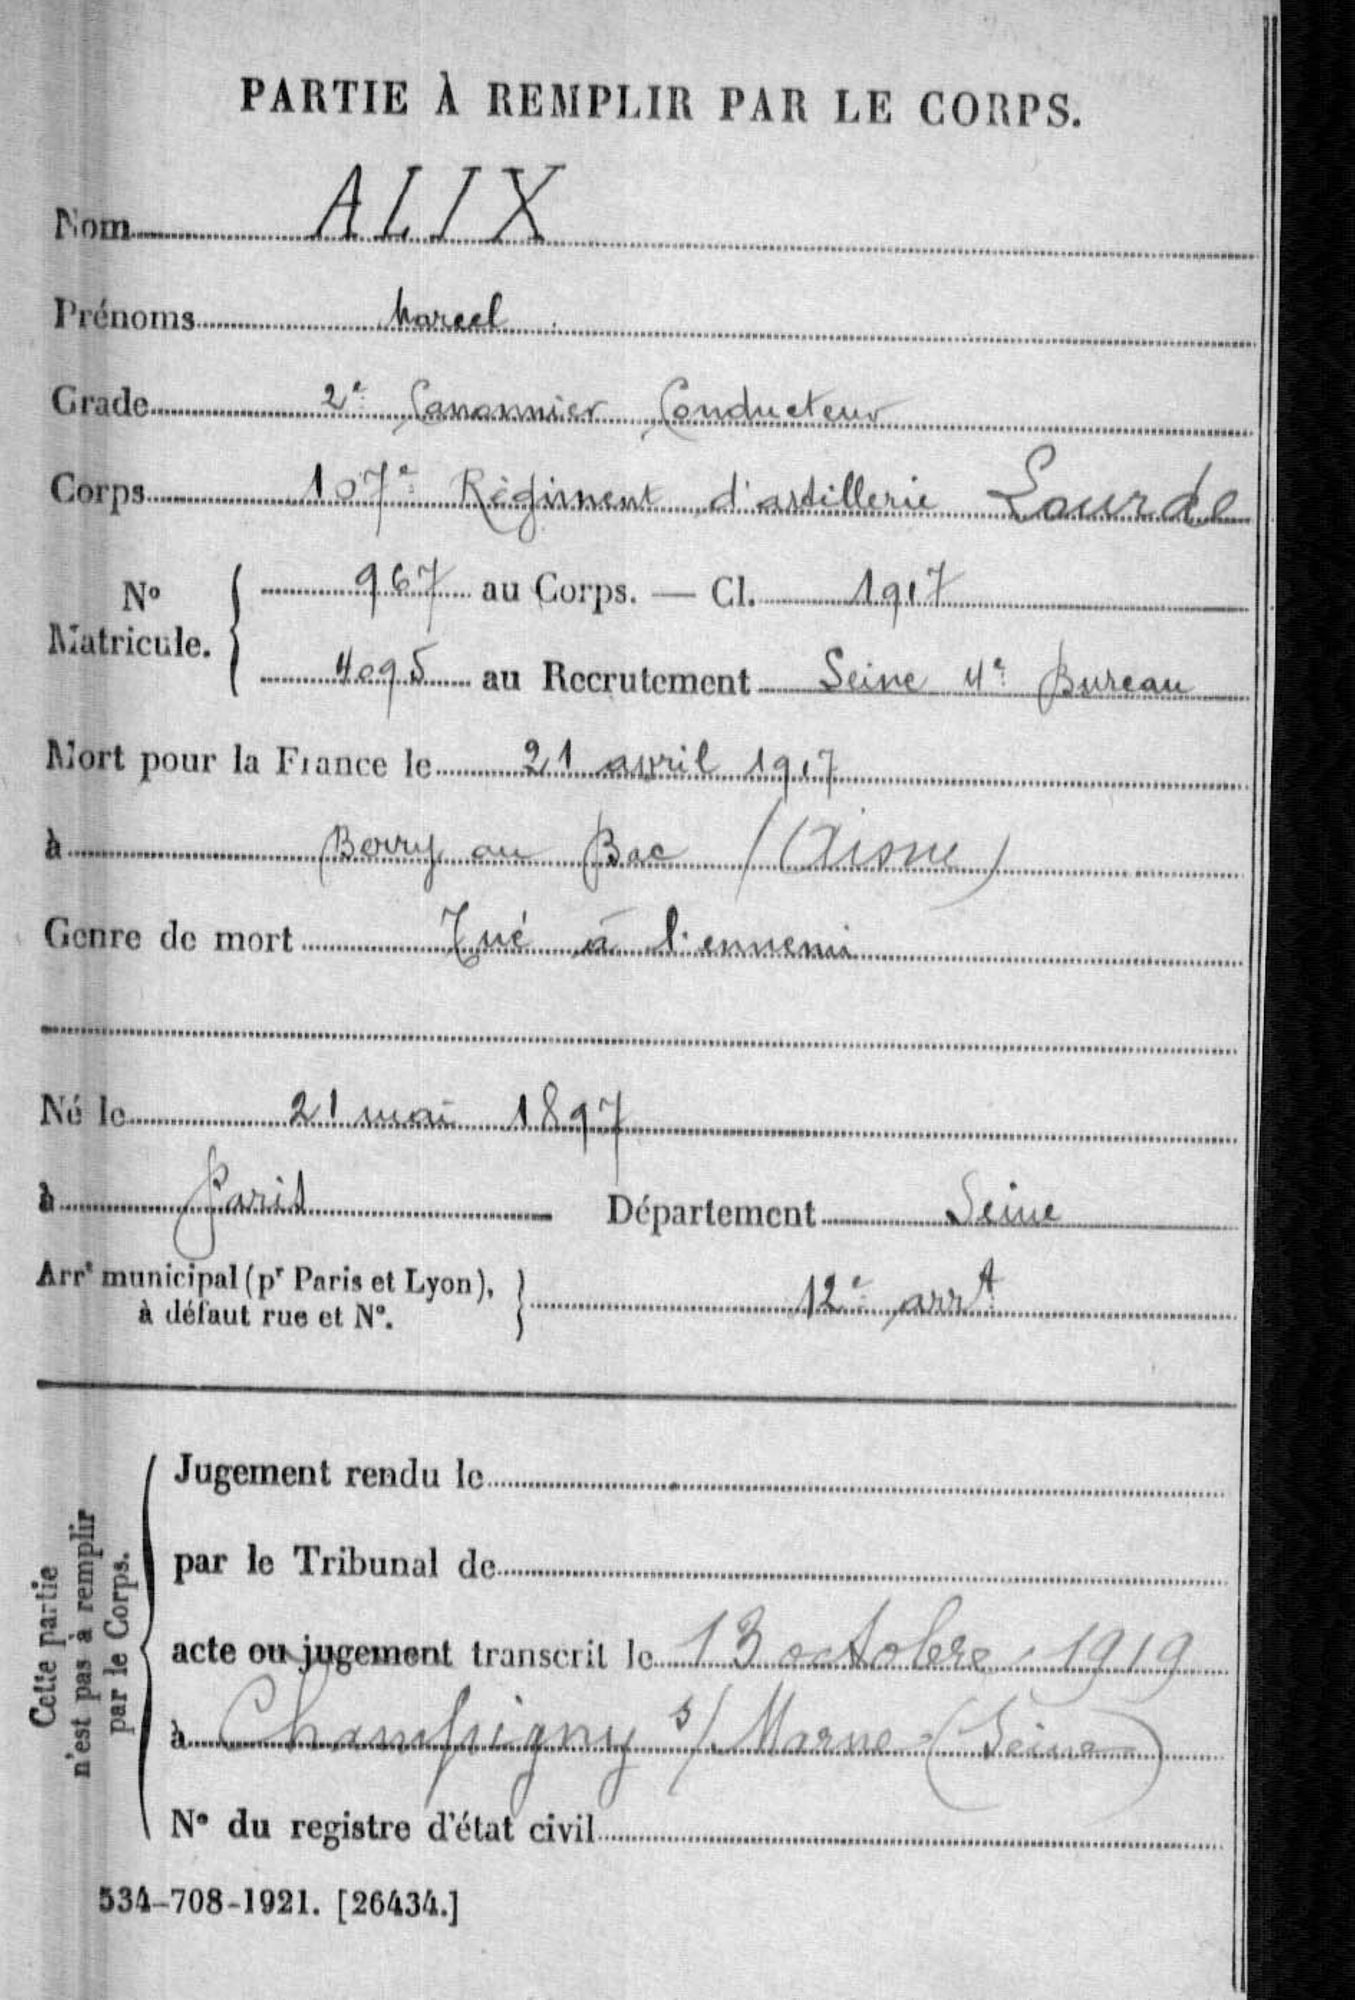 PARTIE À REMPLIR PAR LE CORPS.
Nom ALIX
Prénoms Marcel
Grade 2e Canonnier Conducteur
Corps 107e Régiment d'artillerie Lourde
No Matricule. { 967 au Corps. — Cl. 1917
4095 au Recrutement Seine 4e Bureau
Mort pour la France le 21 avril 1917
à Berry au Bac (Aisne)
Genre de mort Tué à l'ennemi
Né le 21 mai 1897
à Paris Département Seine
Arrt municipal (pr Paris et Lyon), à défaut rue et No. } 12e arrt
Cette partie n'est pas à remplir par le Corps.
Jugement rendu le
par le Tribunal de
acte ou jugement transcrit le 13 octobre 1919
à Champigny s/ Marne (Seine)
No du registre d'état civil
534-708-1921. [26434.]